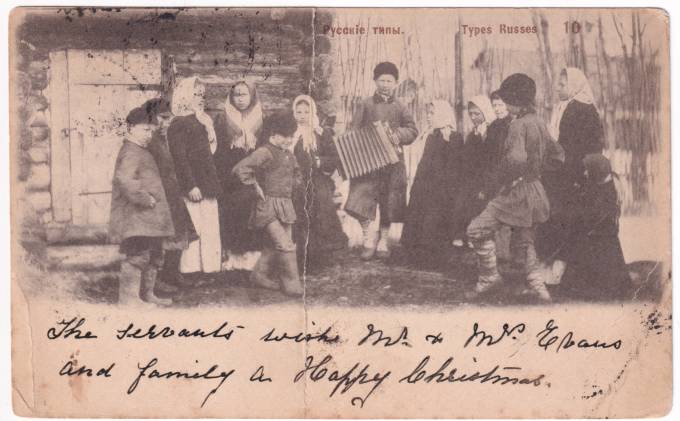 Русскіе типы. Types Russes 10
The servants wish Mr. & Mrs Evans
and family a Happy Christmas.